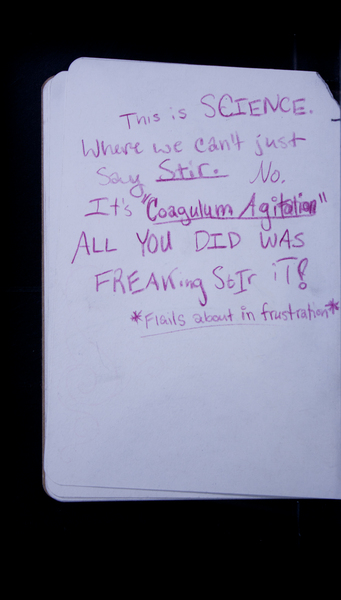 This is SCIENCE.
Where we can't just
Say Stir. No.
It's "Coagulum Agitation"
ALL YOU DID WAS
FREAKing StIr iT!
*Flails about in frustration*